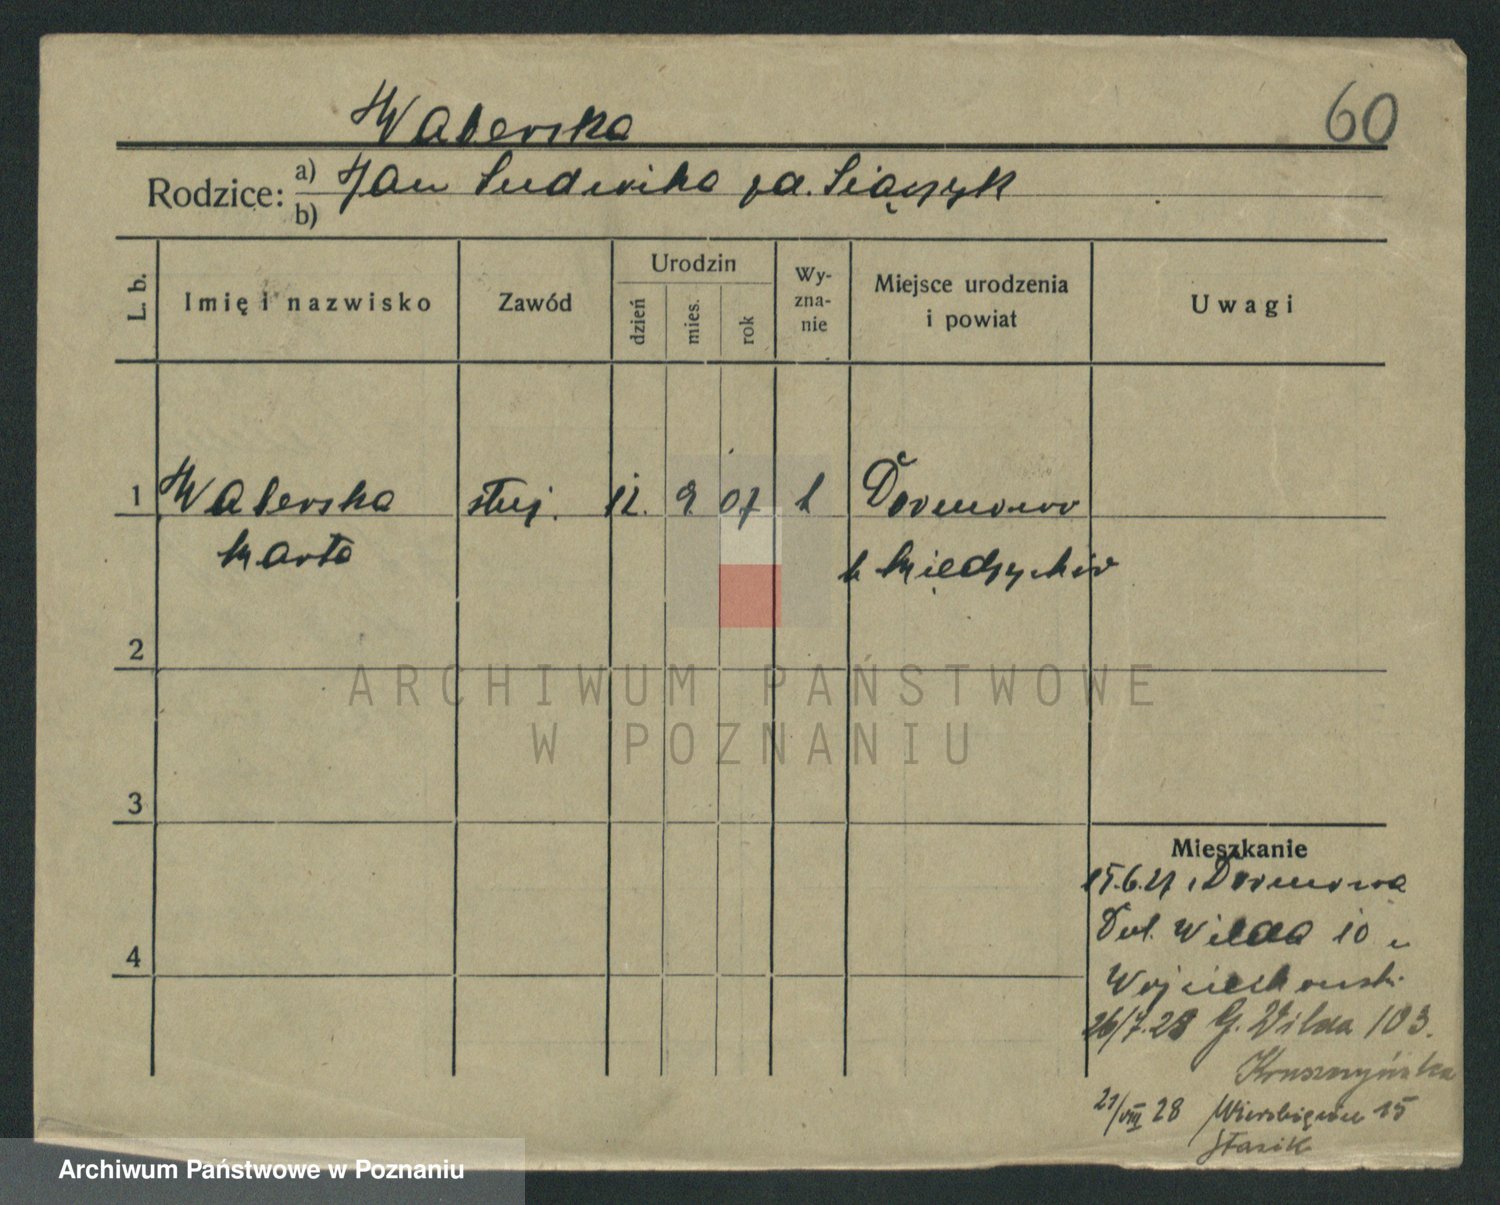 Waberska
60
Rodzice: a) Jan Ludwika
b)
L. b.
Imię i nazwisko
Zawód
Urodzin
dzień
mies.
rok
Wy-
zna-
nie
Miejsce urodzenia
i powiat
Uwagi
1 Waberska służ. 12. 9. 07 k Dormowo
Marta
k Międzychód
2
3
4
Mieszkanie
15.6.27 Dormowa
Dol. Wilda 10 u
Wojciechowski
26/7.28 G. Wilda 103.
Kruszyńska
21/VIII 28 Wierzbięcice 15
Stasik
ARCHIWUM PAŃSTWOWE
W POZNANIU
Archiwum Państwowe w Poznaniu